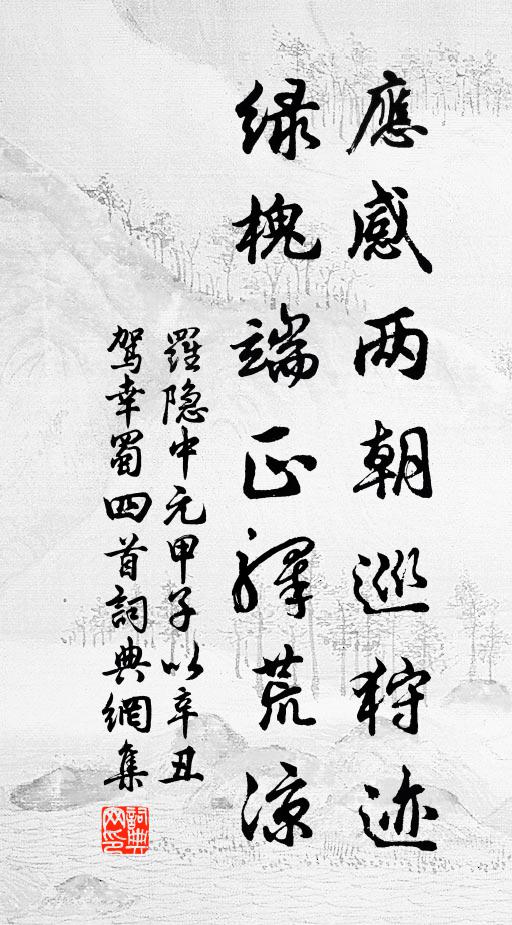 應感两朝巡狩迹
绿槐端正驿荒凉
羅隐中元甲子以辛丑
駕幸蜀四首詞典網集
詞典
网印